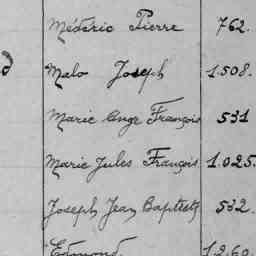 Médéric Pierre 762.
Malo Joseph 1.508.
Marie Ange François 531
Marie Jules François 1.025.
Joseph Jean Baptiste 532.
Edmond 1.260.